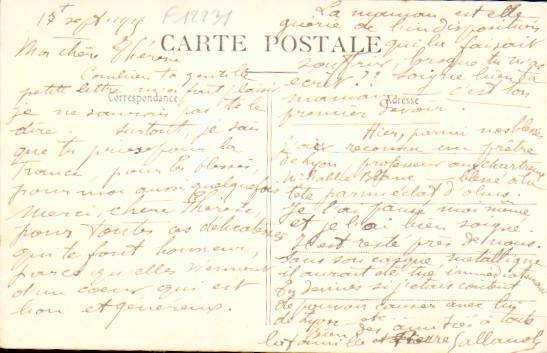 15 sept. 1915
F12231
CARTE POSTALE
Correspondance
Adresse
Ma chère Thérèse
Combien ta gentille
petite lettre m'a fait plaisir
je ne saurais pas te le
dire. Surtout, je sais
que tu pries pour la
France, pour les blessés
pour moi aussi quelquefois
Merci, chère Thérèse,
pour toutes ces délicatesses
qui te font honneur,
parce qu'elles viennent
d'un cœur qui est
bon et généreux.
La maman est-elle
guérie de l'indisposition
qui la faisait
souffrir, lorsque tu m'as
écrit ?? Soigne bien ta
maman, c'est ton
premier devoir.
Hier, parmi nos blessés
j'ai reconnu un prêtre
de Lyon, professeur aux chartreux
Mr l'abbé Blanc - blessé à la
tête par un éclat d'obus.
Je l'ai pansé moi même
et je l'ai bien soigné.
Il est resté près de nous.
Sans son casque métallique
il aurait été tué immédiatement
Tu devines si j'étais content
de pouvoir causer avec lui
de Lyon - etc.
Bien des amitiés à toute
la famille et Pierre Gallands